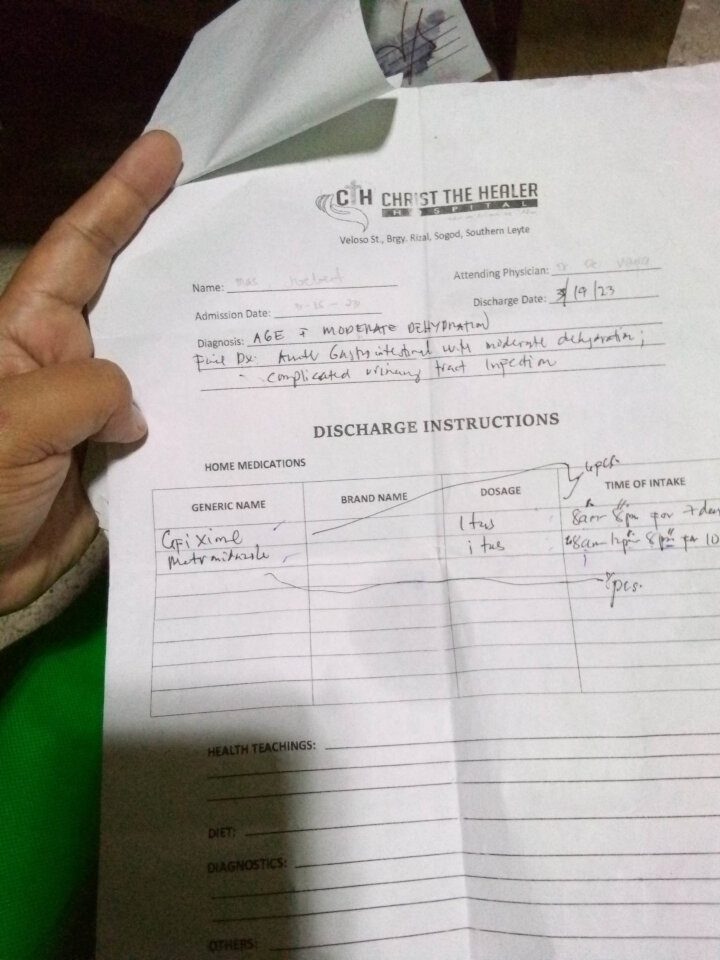 CTH CHRIST THE HEALER
HOSPITAL
Veloso St., Brgy. Rizal, Sogod, Southern Leyte
Name:
Attending Physician:
Admission Date:
Discharge Date: 3/19/23
Diagnosis: AGE c MODERATE DEHYDRATION
Final Dx: Acute Gastrointestinal with moderate dehydration;
- complicated urinary tract Infection
DISCHARGE INSTRUCTIONS
HOME MEDICATIONS
GENERIC NAME BRAND NAME DOSAGE TIME OF INTAKE
Cefixime 1 tab 8am 8pm for 7 day
Metronidazole i tab 8am 8pm 10
pcs.
HEALTH TEACHINGS:
DIET:
DIAGNOSTICS:
OTHERS: